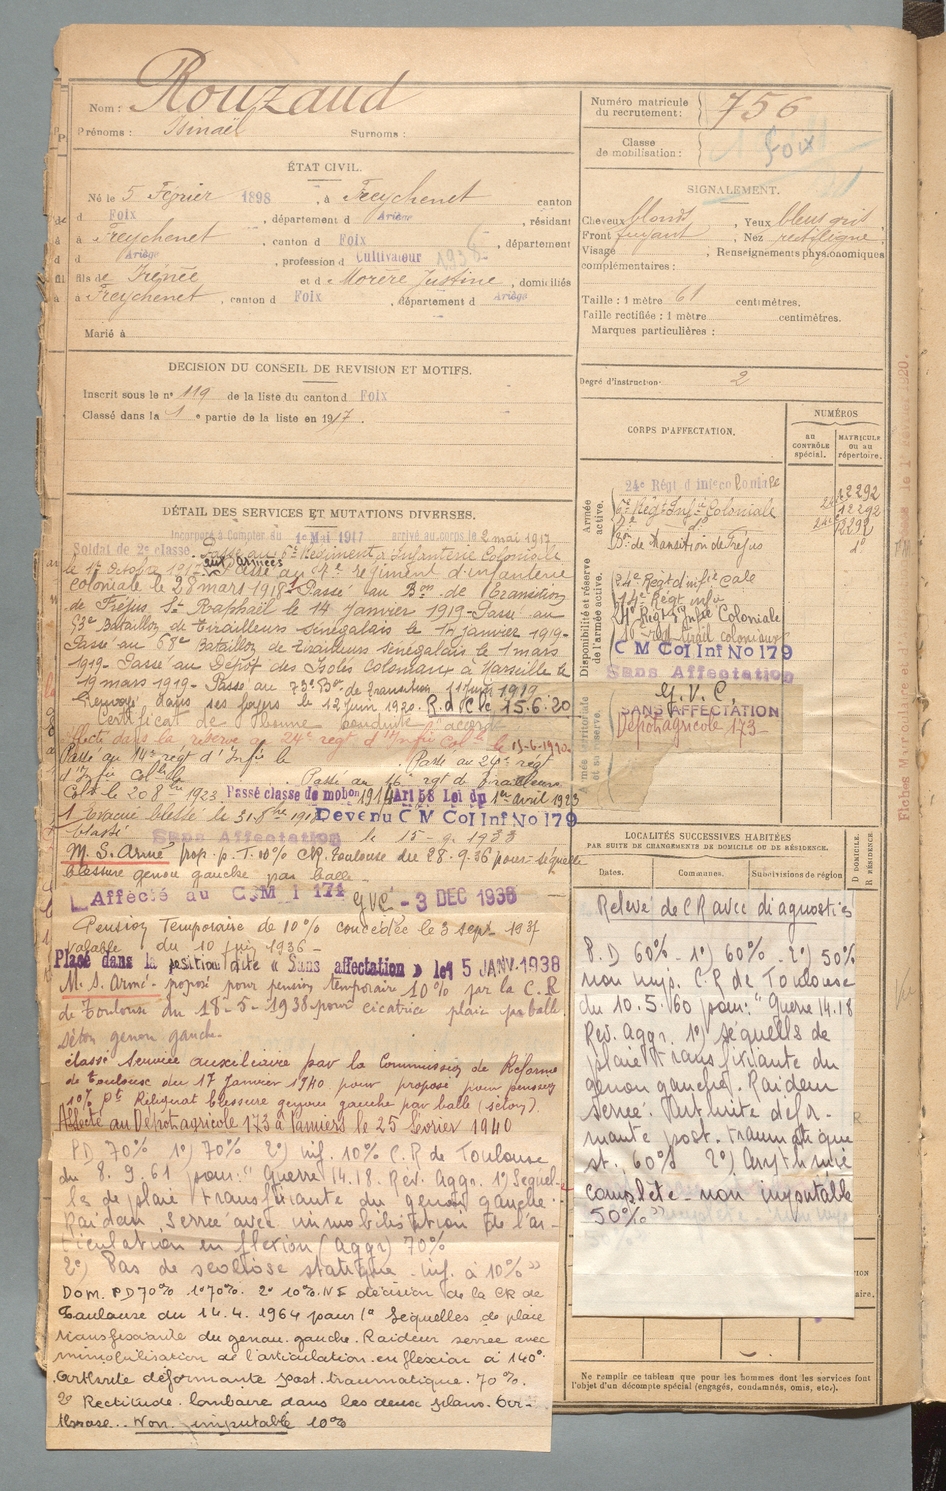 Nom : Rouzaud
Prénoms : Isinaël Surnoms :
ÉTAT CIVIL.
Né le 5 Février 1898, à Freychenet canton
d Foix, département d Ariège, résidant
à Freychenet, canton d Foix, département
d Ariège, profession d Cultivateur 1936
fils de Irénée et d Morère Justine, domiciliés
à Freychenet, canton d Foix, département d Ariège
Marié à
DECISION DU CONSEIL DE REVISION ET MOTIFS.
Inscrit sous le n° 119 de la liste du canton d Foix
Classé dans la 1 e partie de la liste en 1917.
DÉTAIL DES SERVICES ET MUTATIONS DIVERSES.
Incorporé à Compter du 1e Mai 1917 arrivé au corps le 2 mai 1917
Soldat de 2e classe. Passé au Régiment d'Infanterie Coloniale
le 1er octobre Passé au régiment d'infanterie
aux armées
coloniale le 28 mars 1918. Passé au Bon de Transition
de Fréjus, St Raphaël le 14 Janvier 1919 - Passé au
Bataillon de Tirailleurs Sénégalais le 17 janvier 1919 -
Passé au 68e Bataillon de Tirailleurs Sénégalais le 1 mars
1919 - Passé au Dépôt des Isolés Coloniaux à Marseille le
19 mars 1919 - Passé au 73e Bon de transition 11 juin 1919
Renvoyé dans ses foyers le 12 Juin 1920. R.d.C. le 15.6.20
Certificat de bonne conduite accordé
Affecté dans la réserve au 24e régt d'Infie Colle le 15-6-1920
Passé au 14e régt d'Infie le . Passé au 24e régt
d'Infie Colle . Passé au 16e rgt de tirailleurs
Colx le 20 8bre 1923 Passé classe de mobon 1914 Art 58 Loi du 1er avril 1923
1 Evacué blessé le 31-8bre 1918 Devenu C M Col Inf No 179
blessé Sans Affectation le 15-9-1933
M. S. Armé prop. p. T. 10% CR. Toulouse du 28.9.36 pour séquelle
blessure genou gauche par balle
Affecté au C.M I 171 GVC - 3 DEC 1936
Pension Temporaire de 10% concédée le 3 sept. 1937
valable du 10 juin 1936 -
Placé dans la position dite « Sans affectation » le 15 JANV. 1938
M. S. Armé - proposé pour pension temporaire 10% par la C.R
de Toulouse du 18-5-1938 pour cicatrice plaie par balle
séton genou gauche.
classé Service auxiliaire par la Commission de Réforme
de Toulouse du 17 Janvier 1940 pour proposé pour pension
10% Pte Reliquat blessure genou gauche par balle (séton).
Affecté au Dépôt agricole 173 à Pamiers le 25 Février 1940
PD 70% 1°) 70% 2°) inf. 10% C.R de Toulouse
du 8.9.61 pour : "Guerre 14.18. Rév. Aggr. 1°) Séquel-
les de plaie transfixiante du genou gauche.
Raideur serrée avec immobilisation de l'ar-
ticulation en flexion (aggr) 70%
2°) Pas de scoliose statique - inf. à 10% "
Dom. PD 70% 1° 70%. 2° 10%. NI décision de la CR de
Toulouse du 14.4.1964 pour 1° Séquelles de plaie
transfixiante du genou gauche. Raideur serrée avec
immobilisation de l'articulation en flexion à 140°.
Arthrite déformante post. traumatique. 70%.
2° Rectitude lombaire dans les deux plans. Ar-
throse.. Non imputable 10%
Numéro matricule
du recrutement : 756
Classe
de mobilisation : Foix
SIGNALEMENT.
Cheveux blonds, Yeux bleus gris
Front fuyant, Nez rectiligne
Visage , Renseignements physionomiques
complémentaires :
Taille : 1 mètre 61 centimètres.
Taille rectifiée : 1 mètre centimètres.
Marques particulières :
Degré d'instruction 2
CORPS D'AFFECTATION.
NUMÉROS
au CONTRÔLE spécial.
MATRICULE ou au répertoire.
Armée active.
24e Régt d'inf coloniale
Régt Infie Coloniale
Bon de Transition de Fréjus
12292
Disponibilité et réserve de l'armée active.
24e Régt d'infie cale
14e Régt infie
24e Régt Infie Coloniale
16e régt tirail coloniaux
C M Col Inf No 179
Sans Affectation
G. V. C.
SANS AFFECTATION
Dépôt agricole 173
LOCALITÉS SUCCESSIVES HABITÉES
PAR SUITE DE CHANGEMENTS DE DOMICILE OU DE RÉSIDENCE.
Dates. Communes. Subdivisions de région
D DOMICILE.
R RÉSIDENCE
Relevé de CR avec diagnostics
P.D 60% - 1°) 60% - 2°) 50%
non imp. C.R de Toulouse
du 10.5.60 pour : "Guerre 14.18
Rév. Aggr. 1°) séquelles de
plaie transfixiante du
genou gauche. Raideur
serrée. Arthrite défor-
mante post. traumatique
st., 60% 2°) Arythmie
complète - non imputable
50%"
Ne remplir ce tableau que pour les hommes dont les services font
l'objet d'un décompte spécial (engagés, condamnés, omis, etc.).